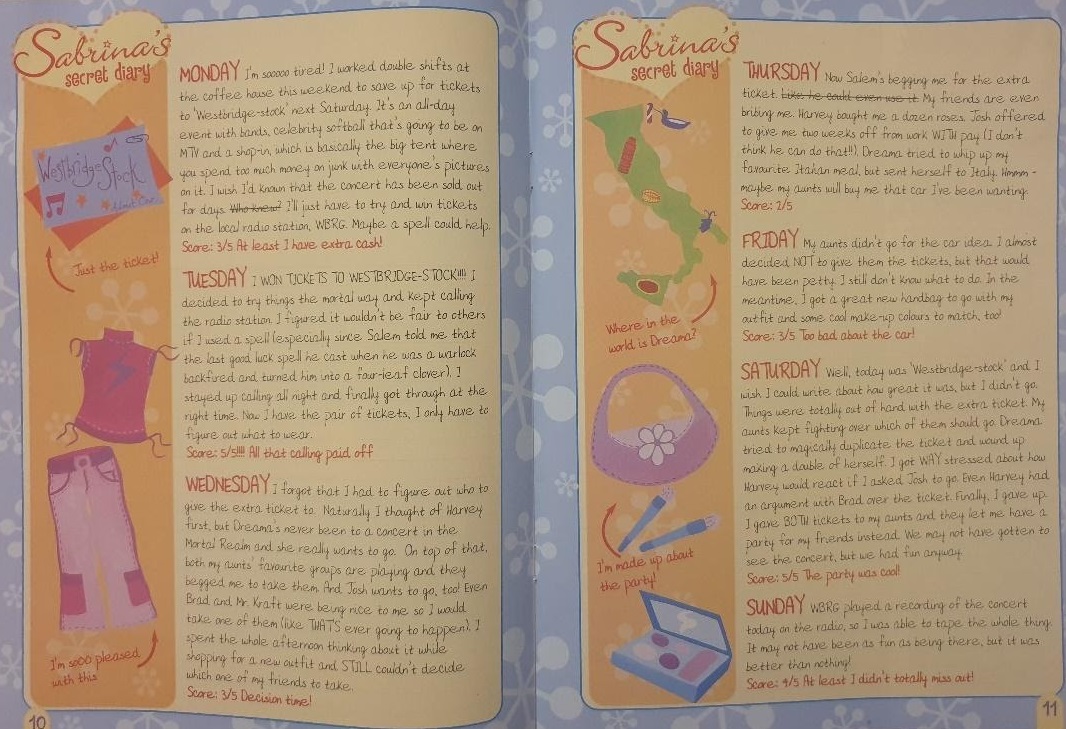 Sabrina's
secret diary
Westbridge
Stock
Admit One
Just the ticket!
I'm sooo pleased
with this
MONDAY I'm sooooo tired! I worked double shifts at
the coffee house this weekend to save up for tickets
to 'Westbridge-stock' next Saturday. It's an all-day
event with bands, celebrity softball that's going to be on
MTV and a shop-in, which is basically the big tent where
you spend too much money on junk with everyone's pictures
on it. I wish I'd known that the concert has been sold out
for days. Who knew? I'll just have to try and win tickets
on the local radio station, WBRG. Maybe a spell could help.
Score: 3/5 At least I have extra cash!
TUESDAY I WON TICKETS TO WESTBRIDGE-STOCK!!!! I
decided to try things the mortal way and kept calling
the radio station. I figured it wouldn't be fair to others
if I used a spell (especially since Salem told me that
the last good luck spell he cast when he was a warlock
backfired and turned him into a four-leaf clover). I
stayed up calling all night and finally got through at the
right time. Now I have the pair of tickets, I only have to
figure out what to wear.
Score: 5/5!!! All that calling paid off
WEDNESDAY I forgot that I had to figure out who to
give the extra ticket to. Naturally I thought of Harvey
first, but Dreama's never been to a concert in the
Mortal Realm and she really wants to go. On top of that,
both my aunts' favourite groups are playing and they
begged me to take them. And Josh wants to go, too! Even
Brad and Mr. Kraft were being nice to me so I would
take one of them (like THAT'S ever going to happen). I
spent the whole afternoon thinking about it while
shopping for a new outfit and STILL couldn't decide
which one of my friends to take.
Score: 3/5 Decision time!
10
Sabrina's
secret diary
Where in the
world is Dreama?
I'm made up about
the party!
THURSDAY Now Salem's begging me for the extra
ticket. Like he could even use it. My friends are even
bribing me. Harvey bought me a dozen roses. Josh offered
to give me two weeks off from work WITH pay (I don't
think he can do that!!). Dreama tried to whip up my
favourite Italian meal, but sent herself to Italy. Hmmm -
maybe my aunts will buy me that car I've been wanting.
Score: 2/5
FRIDAY My aunts didn't go for the car idea. I almost
decided NOT to give them the tickets, but that would
have been petty. I still don't know what to do. In the
meantime, I got a great new handbag to go with my
outfit and some cool make-up colours to match, too!
Score: 3/5 Too bad about the car!
SATURDAY Well, today was 'Westbridge-stock' and I
wish I could write about how great it was, but I didn't go.
Things were totally out of hand with the extra ticket. My
aunts kept fighting over which of them should go. Dreama
tried to magically duplicate the ticket and wound up
making a double of herself. I got WAY stressed about how
Harvey would react if I asked Josh to go. Even Harvey had
an argument with Brad over the ticket. Finally, I gave up.
I gave BOTH tickets to my aunts and they let me have a
party for my friends instead. We may not have gotten to
see the concert, but we had fun anyway.
Score: 5/5 The party was cool!
SUNDAY WBRG played a recording of the concert
today on the radio, so I was able to tape the whole thing.
It may not have been as fun as being there, but it was
better than nothing!
Score: 4/5 At least I didn't totally miss out!
11